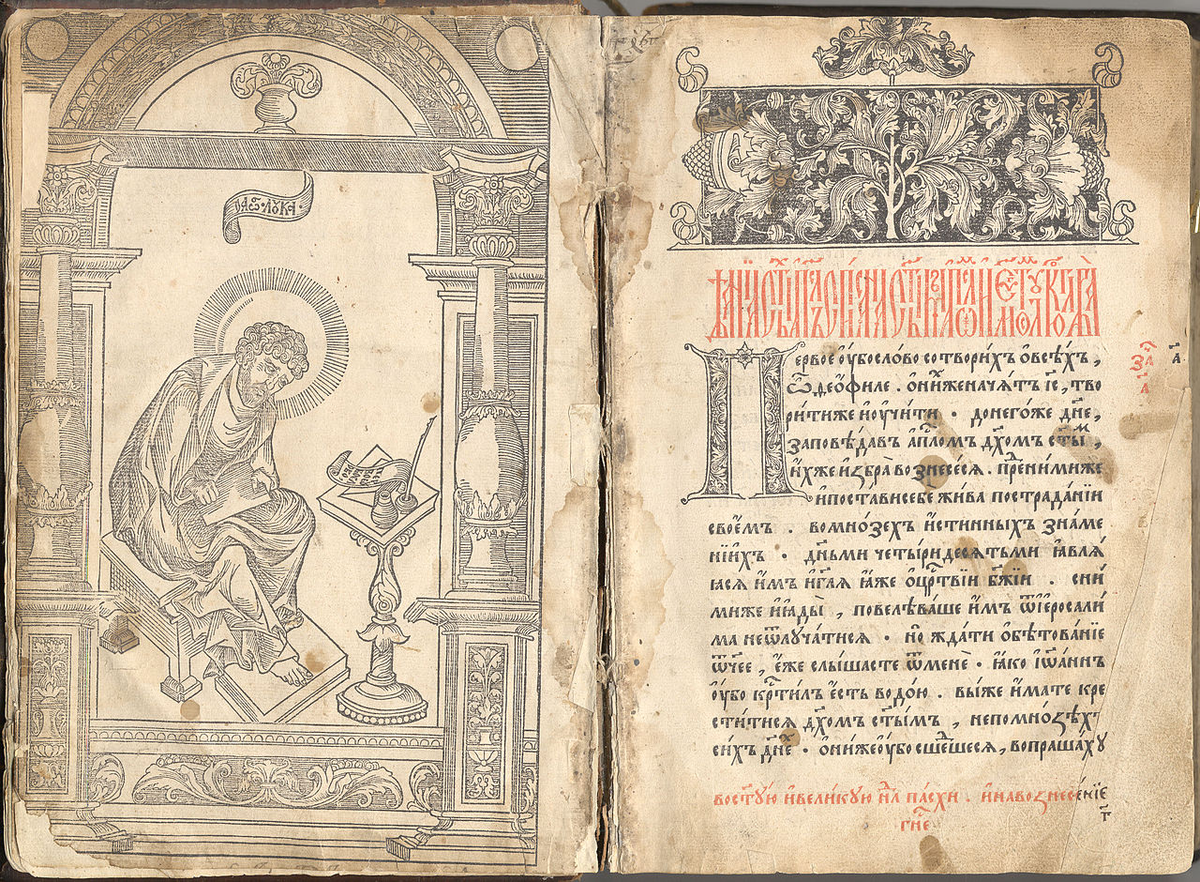 ЛꙊКА
ервоеѹ҆бослово сотворихъ ѡ҆всѣхъ ,
ѽ ѳео҆филе . ѡ҆ниженачатъ і҆с , тво
ритиже иѹ҆чити · донегоже дн҃е ,
заповѣдавъ ап҃лом дх҃ом ст҃ым ,
и҆хже и҆збра вознесесѧ . пренимиже
и҆постависебе жива пострадании
своемъ . вомнозехъ и҆стинныхъ знаме
нїихъ · дньми четыридесѧтьми ꙗ҆влѧ
ꙗсѧ и҆мъ и҆гл҃ѧ ꙗ҆же ѡ҆црт҃вїи бж҃їи . сни
миже и҆ꙗды , повелѣваше и҆мъ ѿі҆еросали
ма неѿлучатисѧ · но ждати ѡ҆бѣтованїе
ѿчее , е҆же слышасте ѿмене · ꙗ҆ко і҆ѡ҆аннъ
ѹ҆бо крт҃илъ е҆сть водою . выже и҆мате кре
ститисѧ дх҃ом ст҃ымъ , непомнозѣхъ
сихъ дн҃е · ѡ҆нижеѹ҆бо сшедшесѧ , вопрашахꙋ
востꙋю и҆великꙋю нл҃ пасхи . и҆навознесенїе
гн҃е